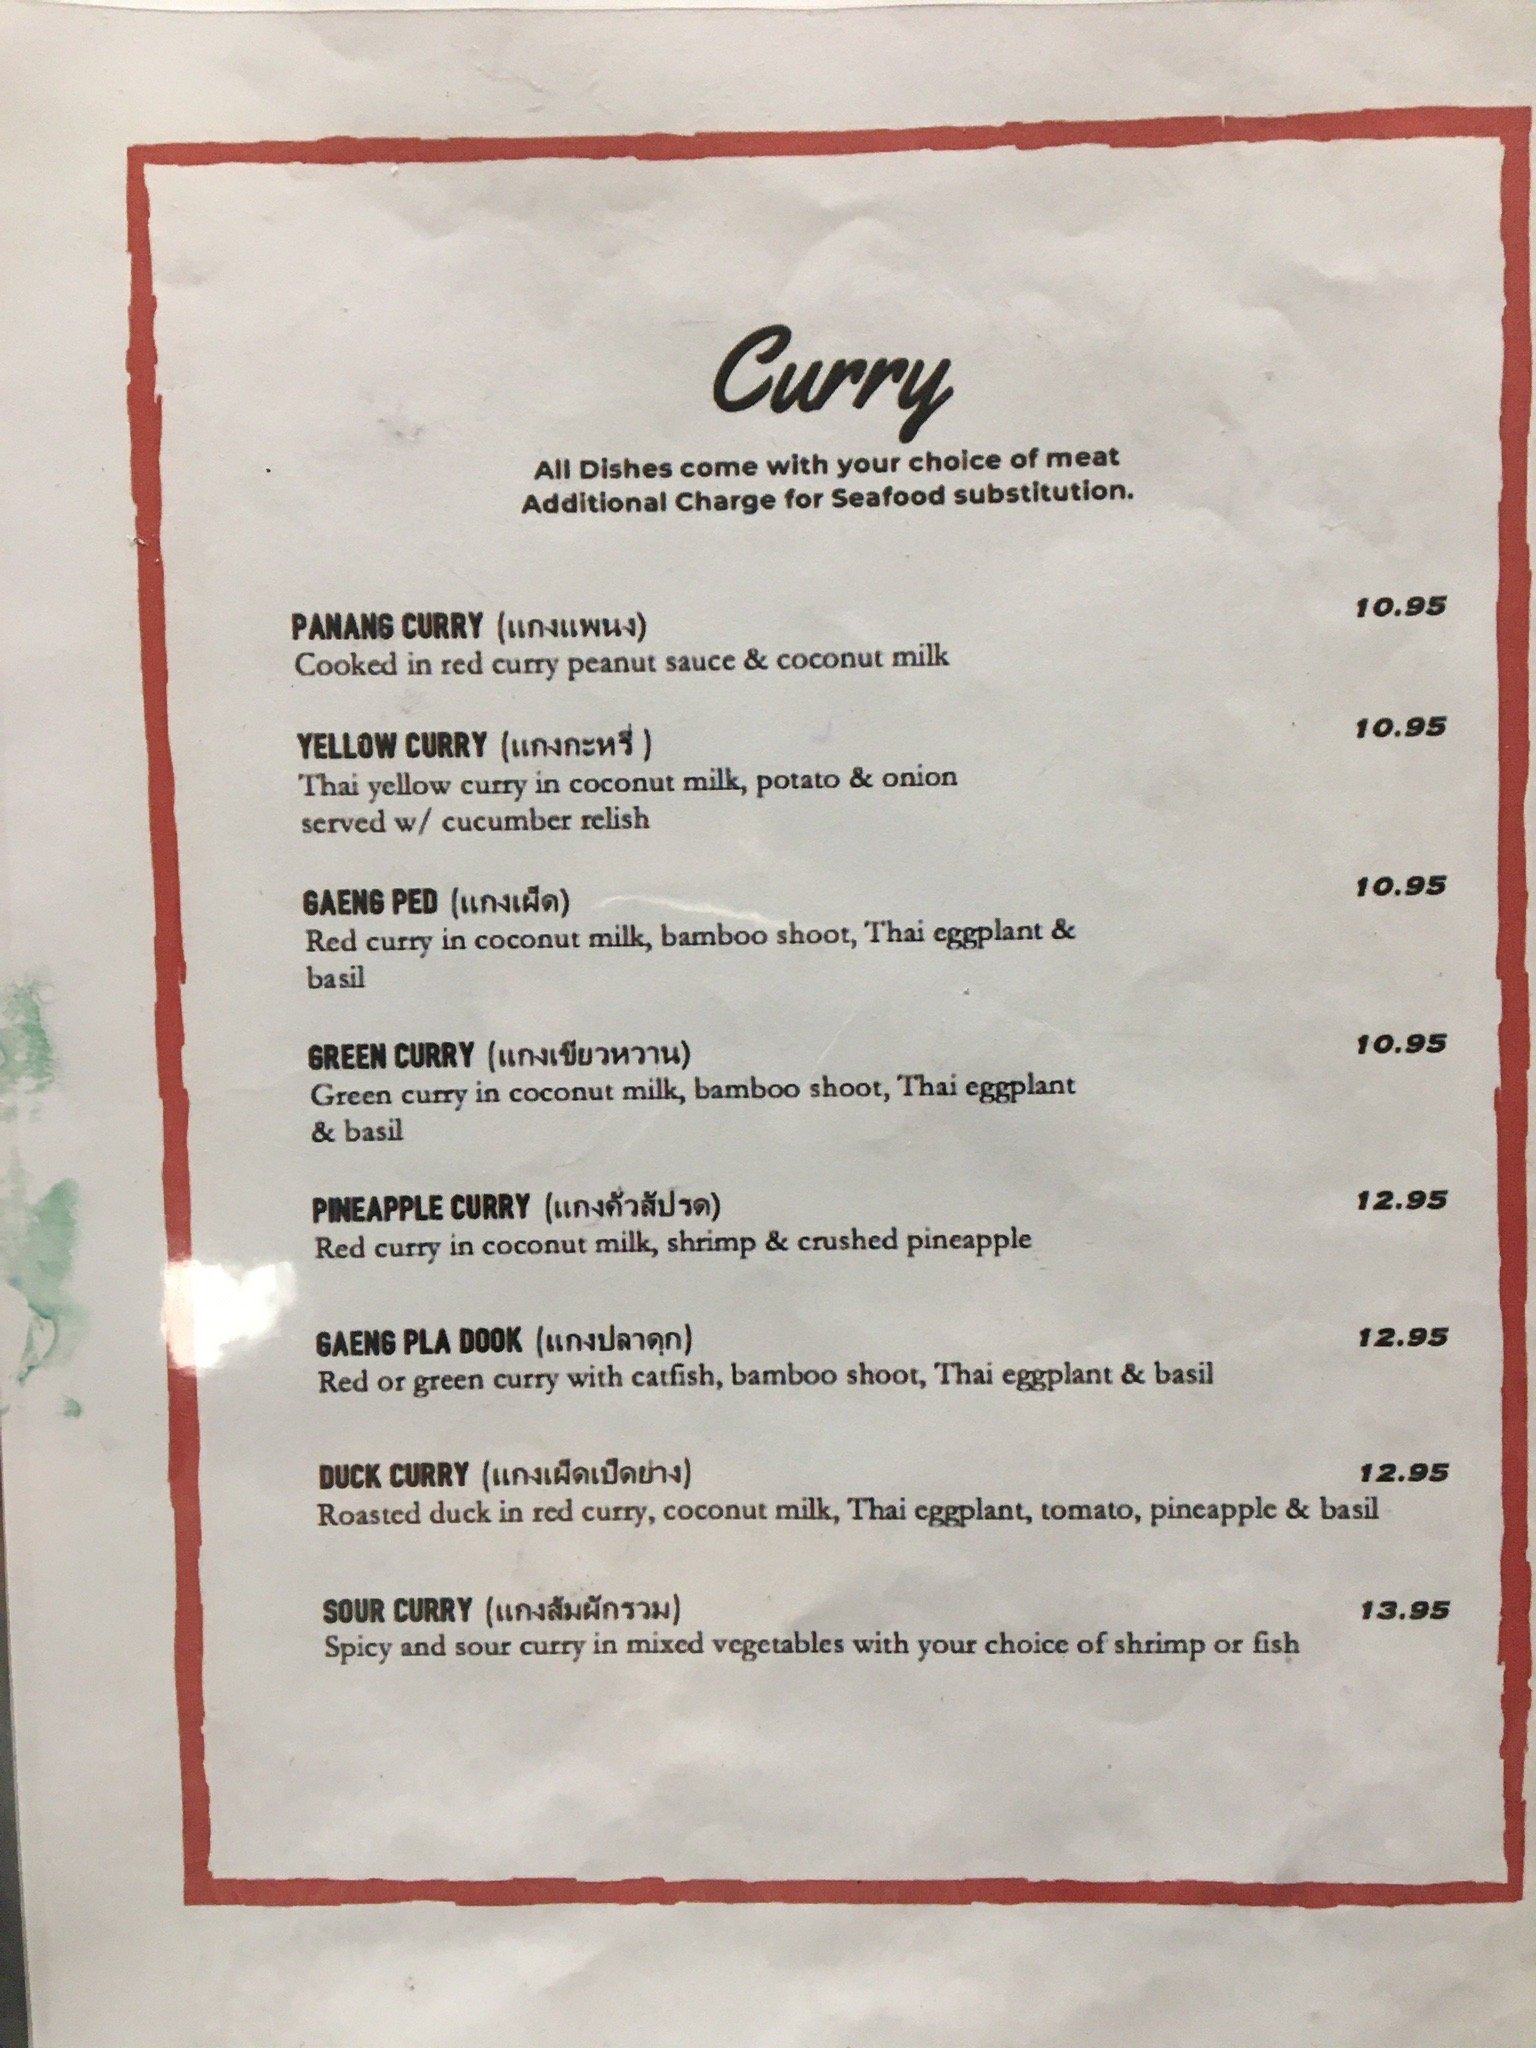 Curry
All Dishes come with your choice of meat
Additional Charge for Seafood substitution.
PANANG CURRY (แกงแพนง) 10.95
Cooked in red curry peanut sauce & coconut milk
YELLOW CURRY (แกงกะหรี่ ) 10.95
Thai yellow curry in coconut milk, potato & onion
served w/ cucumber relish
GAENG PED (แกงเผ็ด) 10.95
Red curry in coconut milk, bamboo shoot, Thai eggplant &
basil
GREEN CURRY (แกงเขียวหวาน) 10.95
Green curry in coconut milk, bamboo shoot, Thai eggplant
& basil
PINEAPPLE CURRY (แกงคั่วสัปรด) 12.95
Red curry in coconut milk, shrimp & crushed pineapple
GAENG PLA DOOK (แกงปลาดุก) 12.95
Red or green curry with catfish, bamboo shoot, Thai eggplant & basil
DUCK CURRY (แกงเผ็ดเป็ดย่าง) 12.95
Roasted duck in red curry, coconut milk, Thai eggplant, tomato, pineapple & basil
SOUR CURRY (แกงส้มผักรวม) 13.95
Spicy and sour curry in mixed vegetables with your choice of shrimp or fish